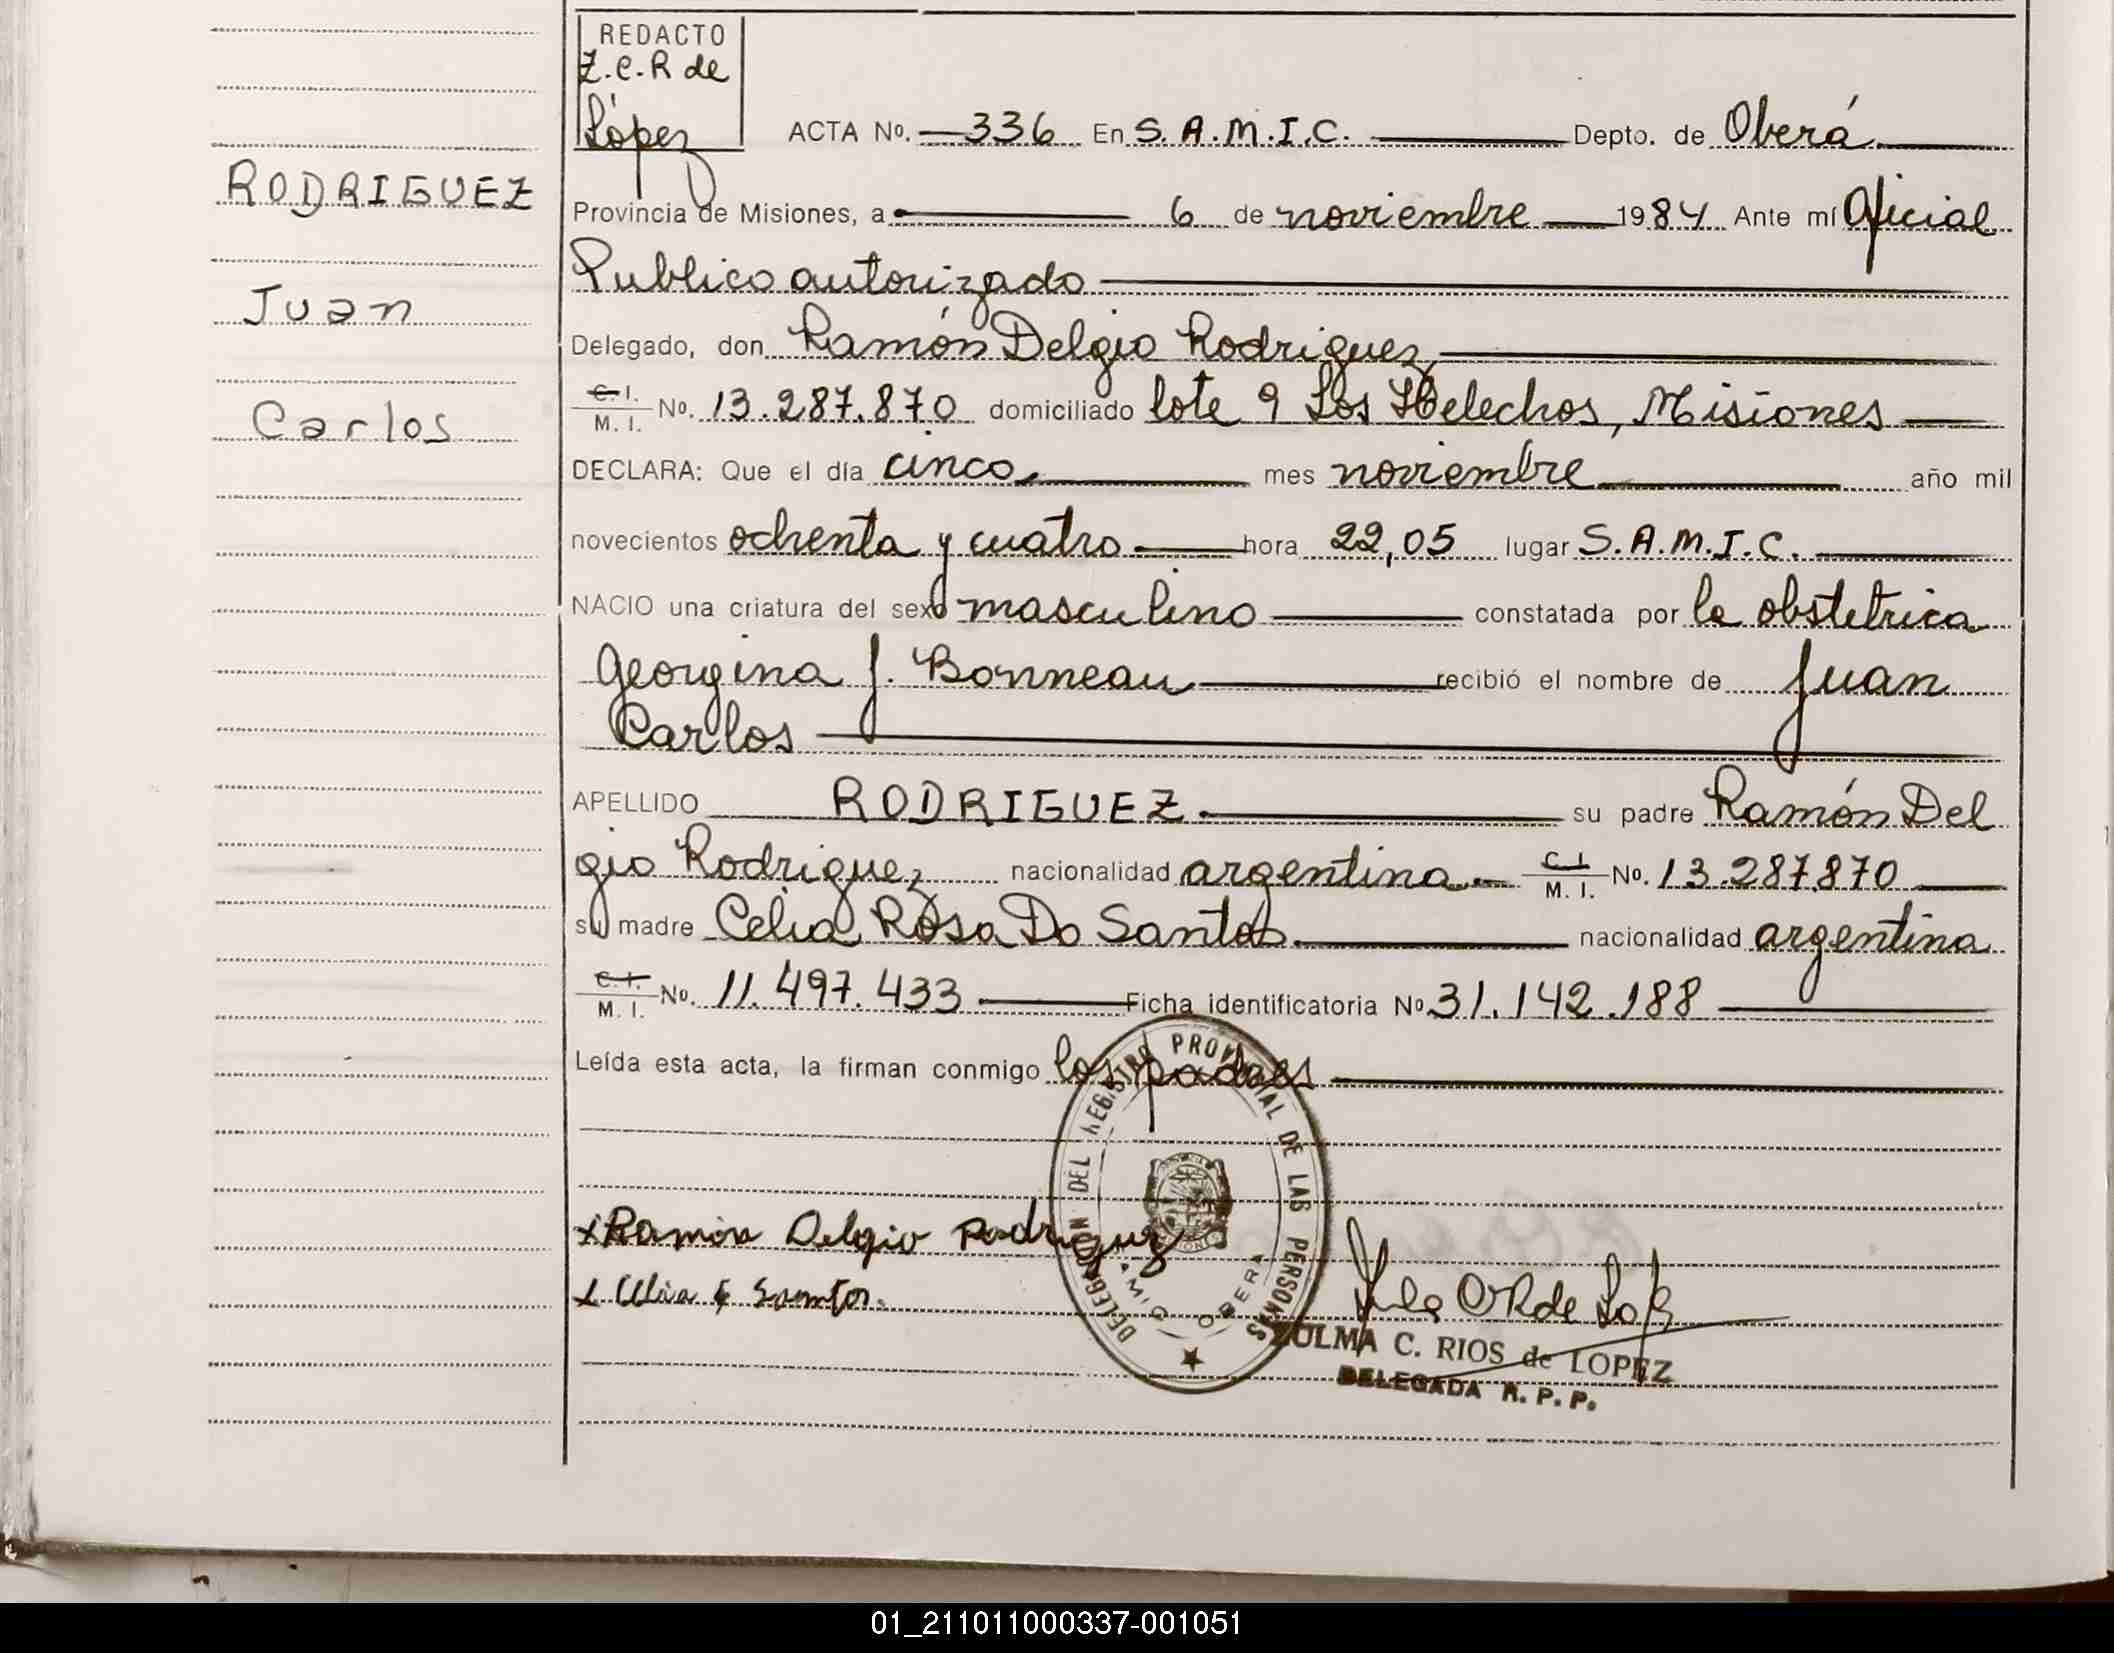 REDACTO
Z.C.R de
López
ACTA No. 336 En S.A.M.I.C. Depto. de Oberá
RODRIGUEZ
Provincia de Misiones, a 6 de noviembre 1984 Ante mí Oficial
Publico autorizado
Juan
Delegado, don Ramón Delgio Rodriguez
Carlos
C.I. M.I. No. 13.287.870 domiciliado lote 9 Los Helechos, Misiones
DECLARA: Que el día cinco mes noviembre año mil
novecientos ochenta y cuatro hora 22,05 lugar S.A.M.I.C.
NACIO una criatura del sexo masculino constatada por la obstetrica
Georgina J. Bonneau recibió el nombre de Juan
Carlos
APELLIDO RODRIGUEZ su padre Ramón Del
gio Rodriguez nacionalidad argentina C.I. M.I. No. 13.287.870
su madre Celia Rosa Do Santos nacionalidad argentina
C.I. M.I. No. 11.497.433 Ficha identificatoria No 31.142.188
Leída esta acta, la firman conmigo los padres
DELEGACION DEL REGISTRO PROVINCIAL DE LAS PERSONAS
OBERA
x Ramón Delgio Rodriguez
x Celia Santos
ZULMA C. RIOS de LOPEZ
DELEGADA R.P.P.
01_211011000337-001051